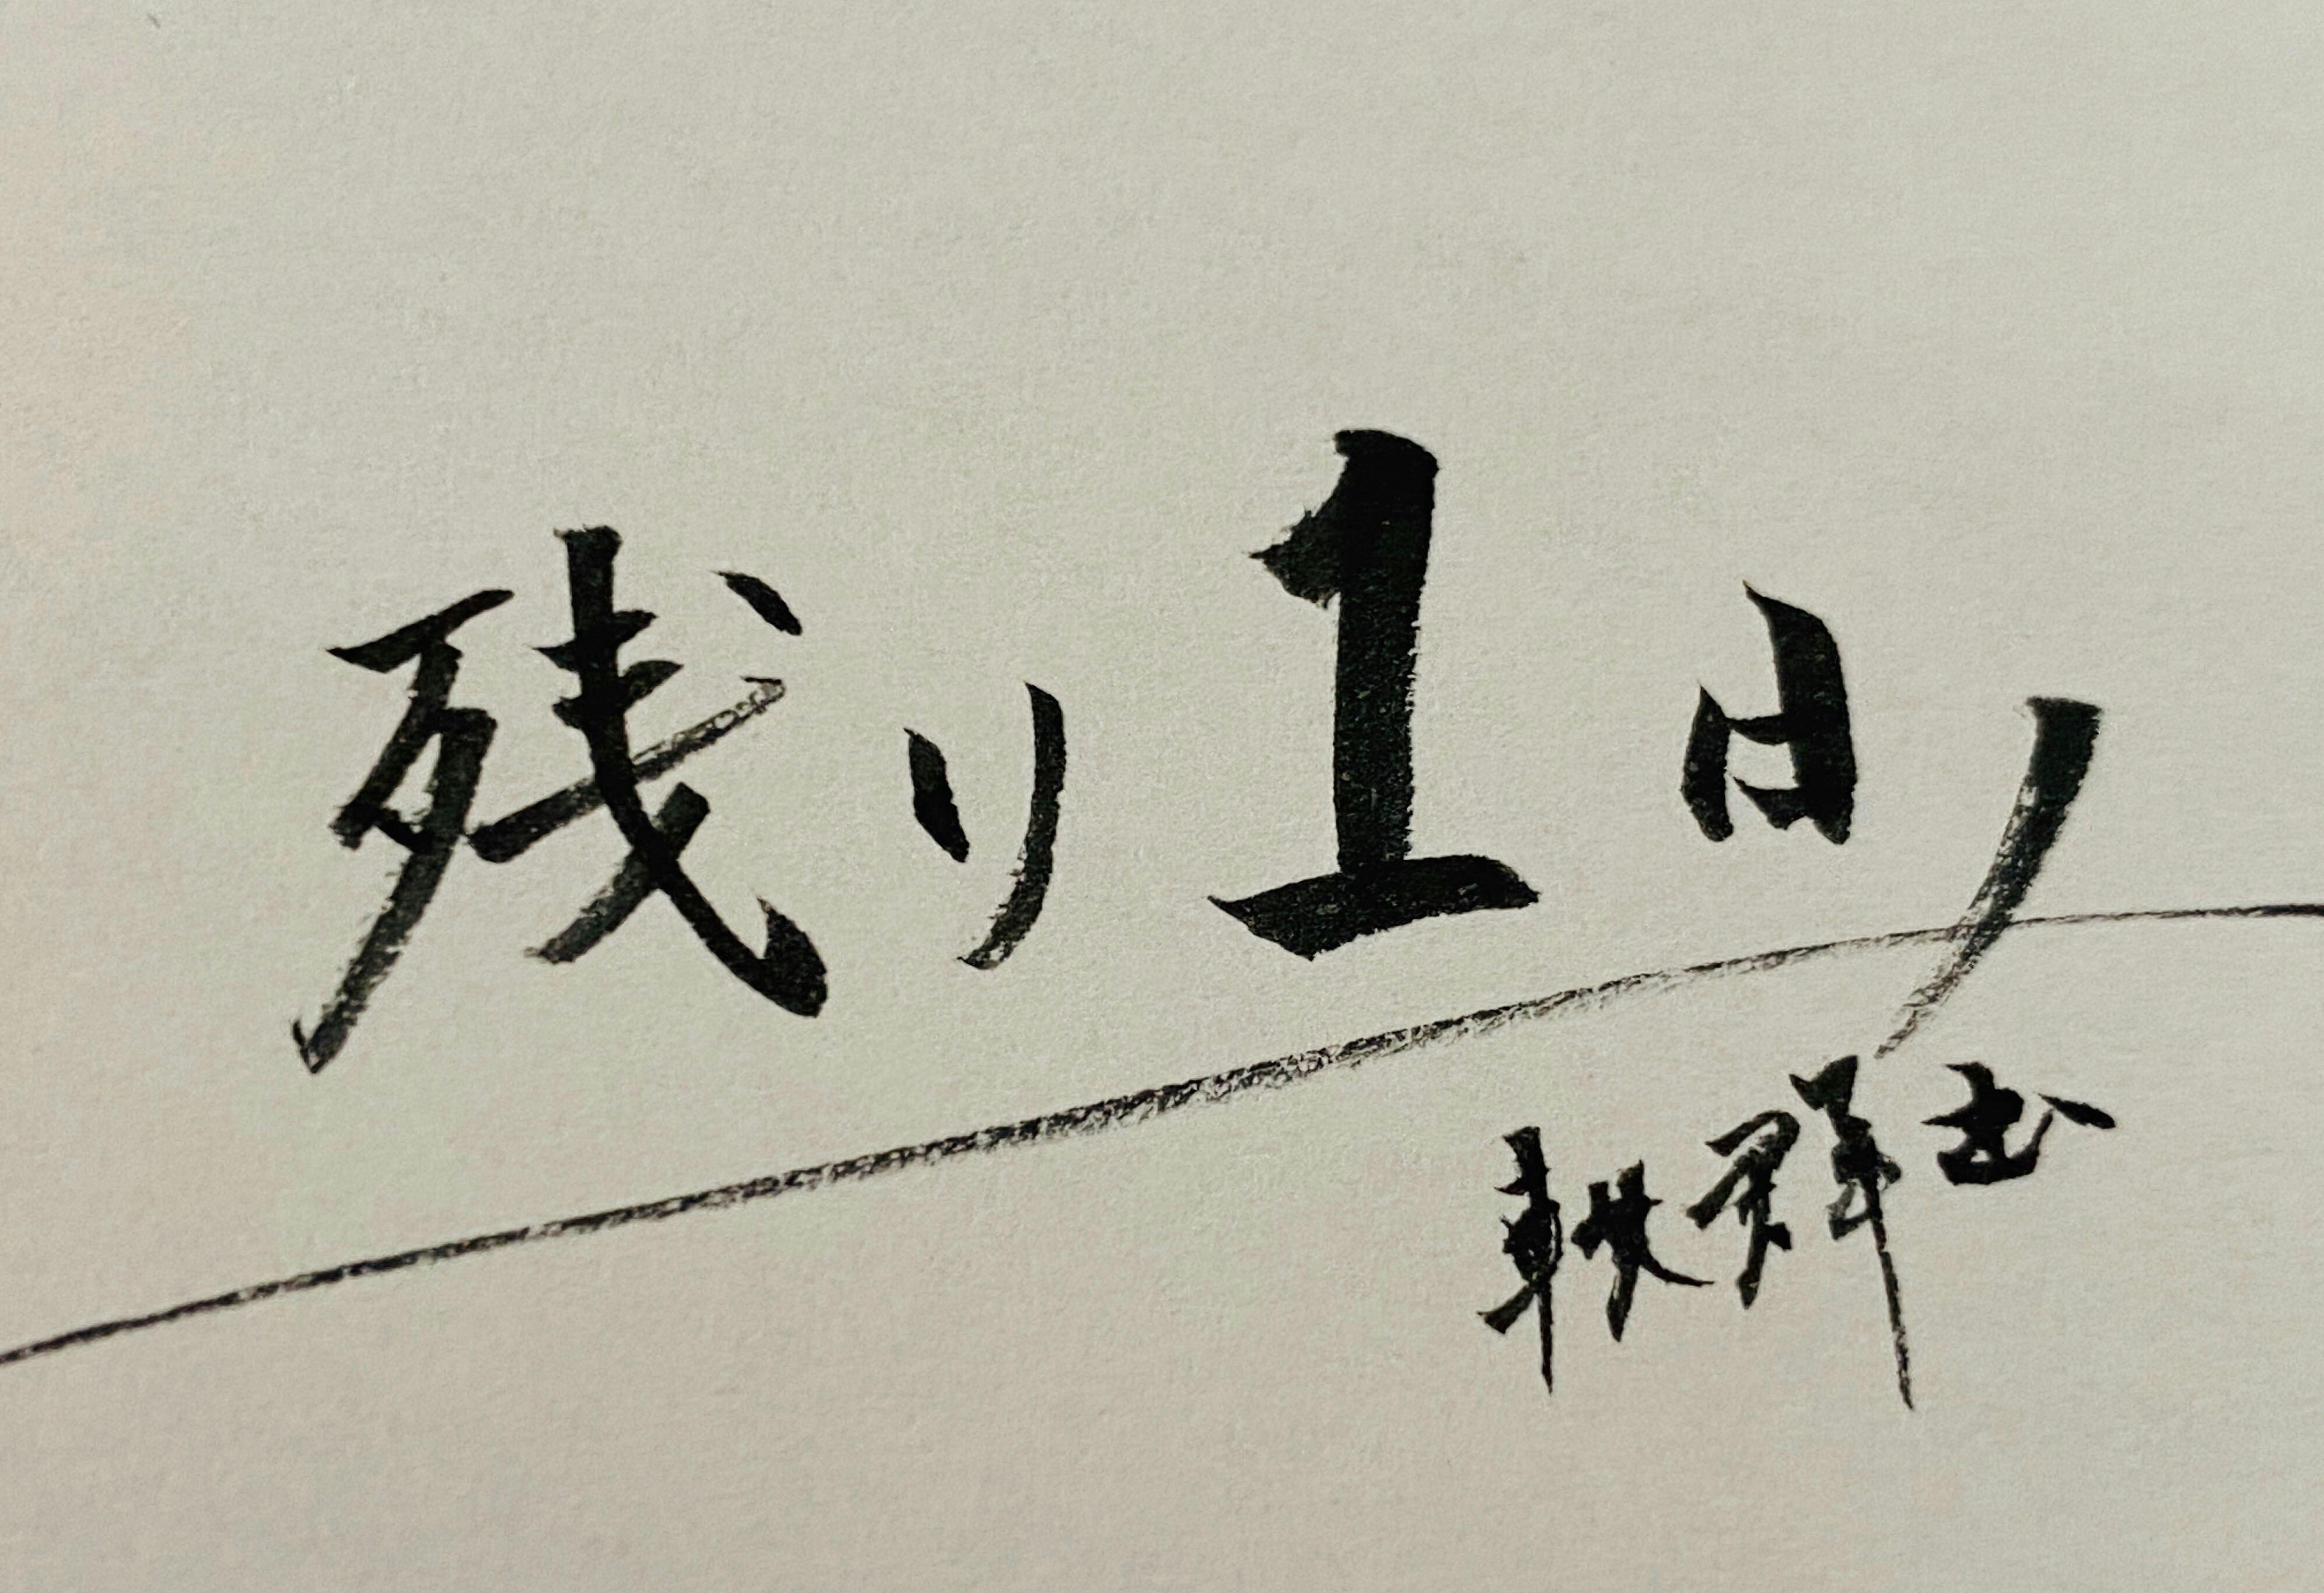 残り1日